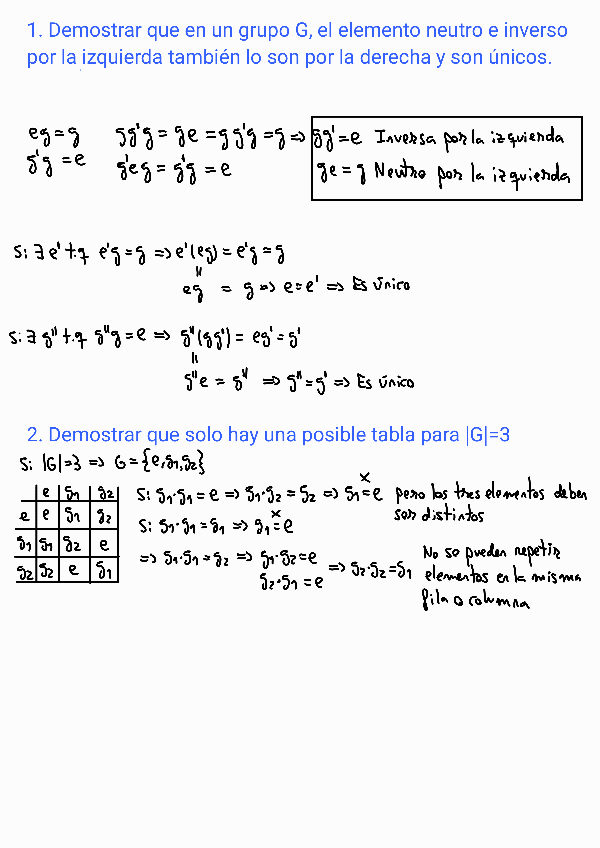 1. Demostrar que en un grupo G, el elemento neutro e inverso
por la izquierda también lo son por la derecha y son únicos.
eg = g gg'g = ge = gg'g = g => gg' = e Inversa por la izquierda
g'g = e g'eg = g'g = e ge = g Neutro por la izquierda
Si ∃ e' t.q e'g = g => e'(eg) = e'g = g
"
eg = g => e = e' => Es único
Si ∃ g'' t.q g''g = e => g''(gg') = eg' = g'
"
g''e = g'' => g'' = g' => Es único
2. Demostrar que solo hay una posible tabla para |G|=3
Si |G|=3 => G = {e, g1, g2}
e g1 g2
e e g1 g2
g1 g1 g2 e
g2 g2 e g1
Si g1·g1 = e => g1·g2 = g2 => g1 = e pero los tres elementos deben
x
ser distintos
Si g1·g1 = g1 => g1 = e
x
=> g1·g1 = g2 => g1·g2 = e => g2·g2 = g1
g2·g1 = e
No se pueden repetir
elementos en la misma
fila o columna